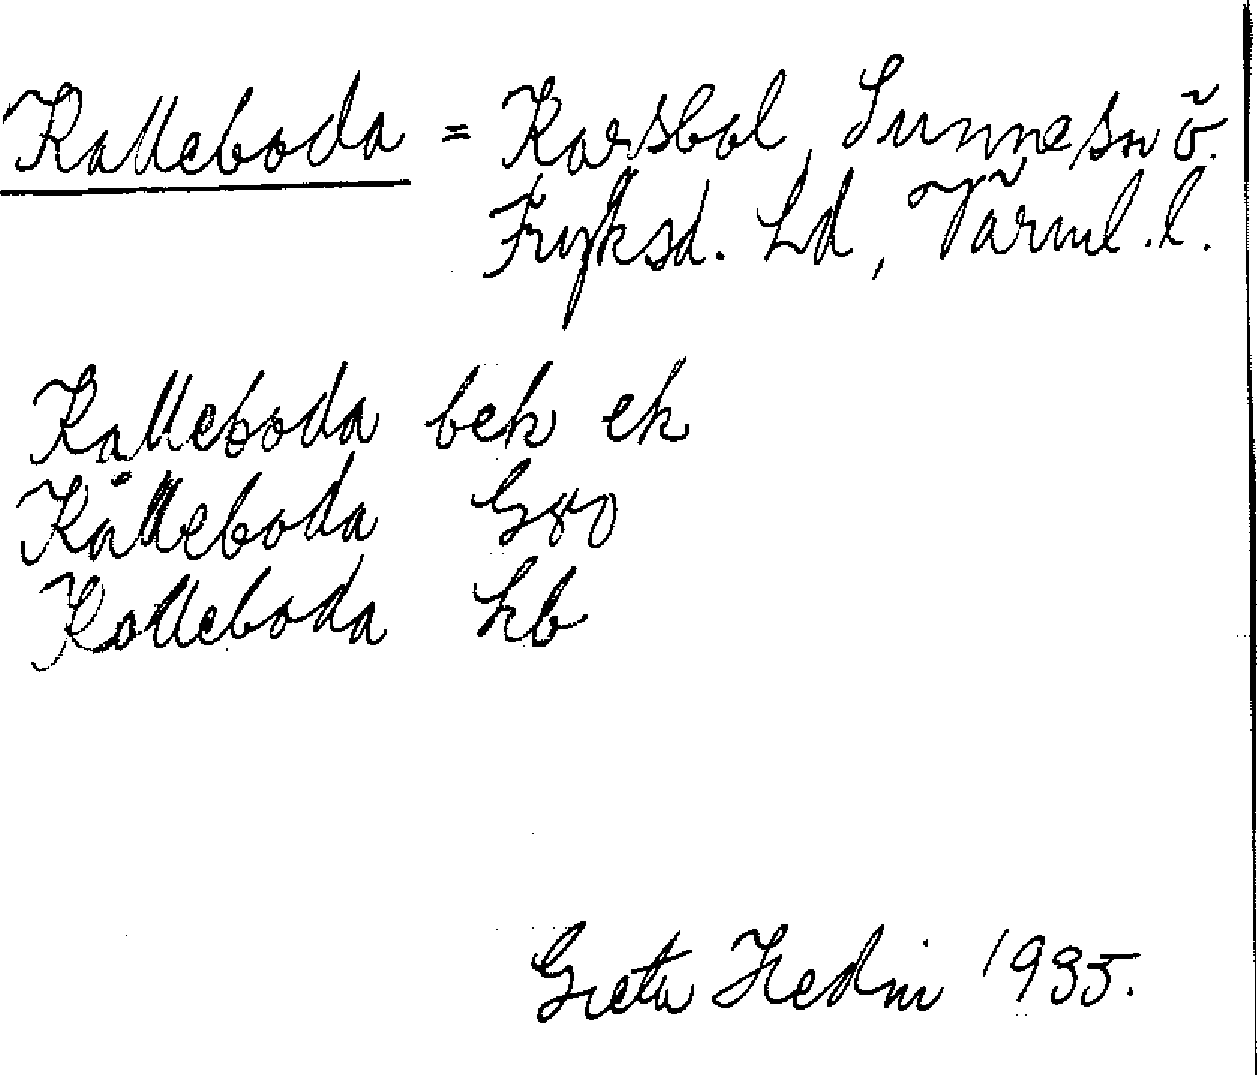 Kalleboda = Karsbol, Sunne sn ö.
Fryksd. Hd, Värml. l.
Kalleboda bek ek
Kålleboda Gso
Kolleboda Lb
Greta Hedin 1935.